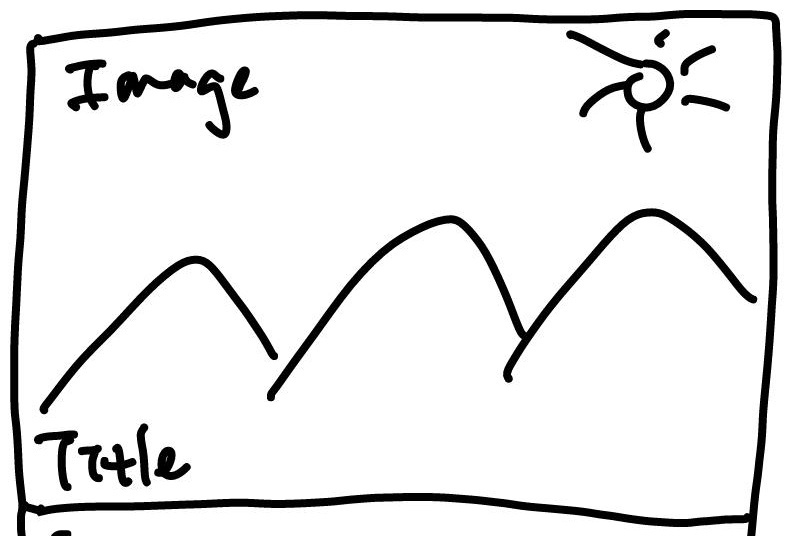 Image
Title